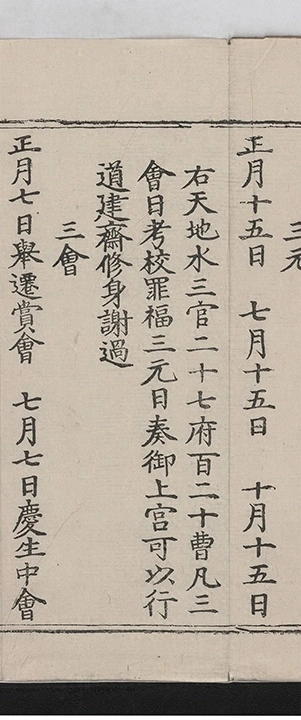 三元
正月十五日　七月十五日　十月十五日
右天地水三官二十七府百二十曹凡三
會日考校罪福三元日奏御上宮可以行
道建齋修身謝過
三會
正月七日舉遷賞會　七月七日慶生中會